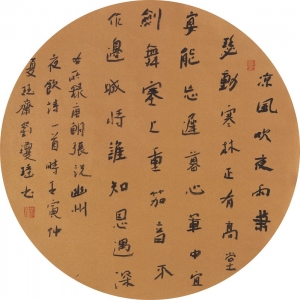 涼風吹夜雨蕭
瑟動寒林正有高堂
宴能忘遲暮心軍中宜
劍舞塞上重笳音不
作邊城將誰知恩遇深
右所録唐朝張説幽州
夜飲詩一首時壬寅仲
夏齋劉瓊書